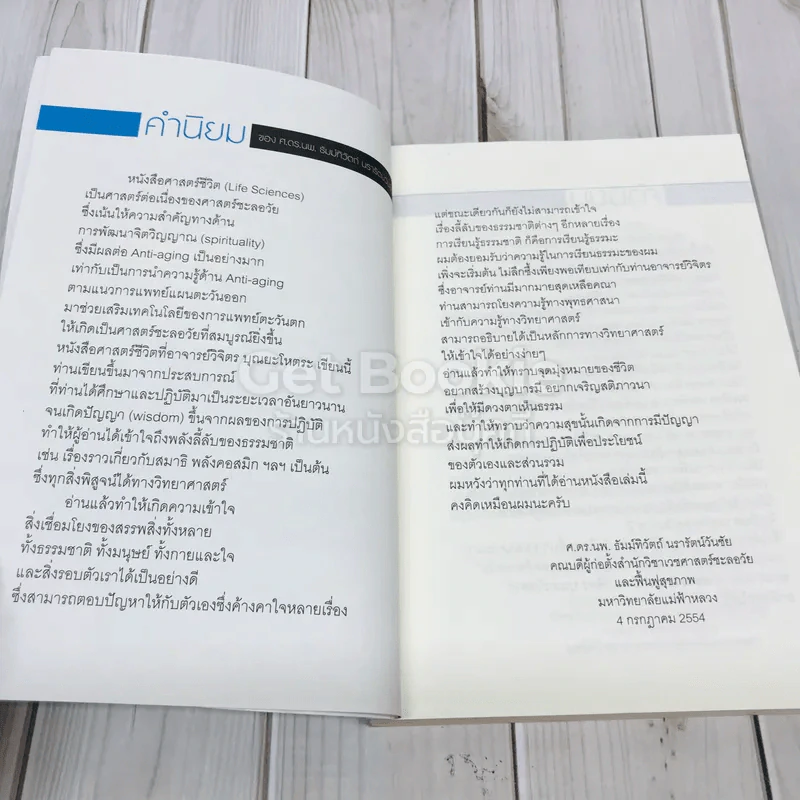 คำนิยม
ของ ศ.ดร.นพ. ธัมม์ทิวัตถ์ นรารัตน์วันชัย
หนังสือศาสตร์ชีวิต (Life Sciences)
เป็นศาสตร์ต่อเนื่องของศาสตร์ชะลอวัย
ซึ่งเน้นให้ความสำคัญทางด้าน
การพัฒนาจิตวิญญาณ (spirituality)
ซึ่งมีผลต่อ Anti-aging เป็นอย่างมาก
เท่ากับเป็นการนำความรู้ด้าน Anti-aging
ตามแนวการแพทย์แผนตะวันออก
มาช่วยเสริมเทคโนโลยีของการแพทย์ตะวันตก
ให้เกิดเป็นศาสตร์ชะลอวัยที่สมบูรณ์ยิ่งขึ้น
หนังสือศาสตร์ชีวิตที่อาจารย์วิจิตร บุณยะโหตระ เขียนนี้
ท่านเขียนขึ้นมาจากประสบการณ์
ที่ท่านได้ศึกษาและปฏิบัติมาเป็นระยะเวลาอันยาวนาน
จนเกิดปัญญา (wisdom) ขึ้นจากผลของการปฏิบัติ
ทำให้ผู้อ่านได้เข้าใจถึงพลังลี้ลับของธรรมชาติ
เช่น เรื่องราวเกี่ยวกับสมาธิ พลังคอสมิก ฯลฯ เป็นต้น
ซึ่งทุกสิ่งพิสูจน์ได้ทางวิทยาศาสตร์
อ่านแล้วทำให้เกิดความเข้าใจ
สิ่งเชื่อมโยงของสรรพสิ่งทั้งหลาย
ทั้งธรรมชาติ ทั้งมนุษย์ ทั้งกายและใจ
และสิ่งรอบตัวเราได้เป็นอย่างดี
ซึ่งสามารถตอบปัญหาให้กับตัวเองซึ่งค้างคาใจหลายเรื่อง
แต่ขณะเดียวกันก็ยังไม่สามารถเข้าใจ
เรื่องลี้ลับของธรรมชาติต่างๆ อีกหลายเรื่อง
การเรียนรู้ธรรมชาติ ก็คือการเรียนรู้ธรรมะ
ผมต้องยอมรับว่าความรู้ในการเรียนธรรมะของผม
เพิ่งจะเริ่มต้น ไม่ลึกซึ้งเพียงพอเทียบเท่ากับท่านอาจารย์วิจิตร
ซึ่งอาจารย์ท่านมีมากมายสุดเหลือคณา
ท่านสามารถโยงความรู้ทางพุทธศาสนา
เข้ากับความรู้ทางวิทยาศาสตร์
สามารถอธิบายได้เป็นหลักการทางวิทยาศาสตร์
ให้เข้าใจได้อย่างง่ายๆ
อ่านแล้วทำให้ทราบจุดมุ่งหมายของชีวิต
อยากสร้างบุญบารมี อยากเจริญสติภาวนา
เพื่อให้มีดวงตาเห็นธรรม
และทำให้ทราบว่าความสุขนั้นเกิดจากการมีปัญญา
ส่งผลทำให้เกิดการปฏิบัติเพื่อประโยชน์
ของตัวเองและส่วนรวม
ผมหวังว่าทุกท่านที่ได้อ่านหนังสือเล่มนี้
คงคิดเหมือนผมนะครับ
ศ.ดร.นพ. ธัมม์ทิวัตถ์ นรารัตน์วันชัย
คณบดีผู้ก่อตั้งสำนักวิชาเวชศาสตร์ชะลอวัย
และฟื้นฟูสุขภาพ
มหาวิทยาลัยแม่ฟ้าหลวง
4 กรกฎาคม 2554